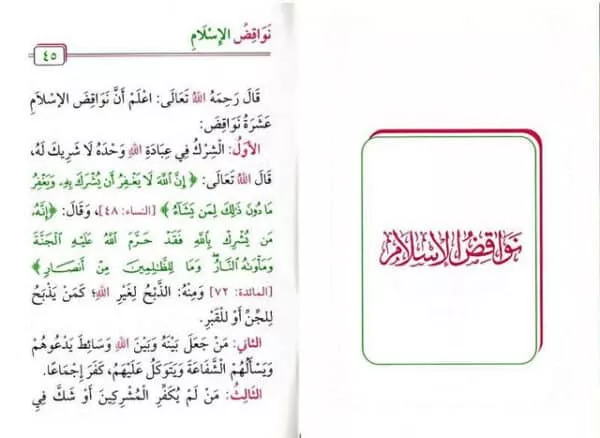 نَوَاقِضُ الإِسْلَامِ
نَوَاقِضُ الإِسْلَامِ
٤٥
قَالَ رَحِمَهُ اللهُ تَعَالَى: اعْلَمْ أَنَّ نَوَاقِضَ الإِسْلَامِ
عَشَرَةُ نَوَاقِضَ:
الأَوَّلُ: الشِّرْكُ فِي عِبَادَةِ اللهِ وَحْدَهُ لَا شَرِيكَ لَهُ،
قَالَ اللهُ تَعَالَى: ﴿إِنَّ ٱللَّهَ لَا يَغْفِرُ أَن يُشْرَكَ بِهِۦ وَيَغْفِرُ
مَا دُونَ ذَٰلِكَ لِمَن يَشَآءُ﴾ [النساء: ٤٨]، وَقَالَ: ﴿إِنَّهُۥ
مَن يُشْرِكْ بِٱللَّهِ فَقَدْ حَرَّمَ ٱللَّهُ عَلَيْهِ ٱلْجَنَّةَ
وَمَأْوَىٰهُ ٱلنَّارُ ۖ وَمَا لِلظَّـٰلِمِينَ مِنْ أَنصَارٍ﴾
[المائدة: ٧٢] وَمِنْهُ: الذَّبْحُ لِغَيْرِ اللهِ؛ كَمَنْ يَذْبَحُ
لِلْجِنِّ أَوْ لِلْقَبْرِ.
الثَّانِي: مَنْ جَعَلَ بَيْنَهُ وَبَيْنَ اللهِ وَسَائِطَ يَدْعُوهُمْ
وَيَسْأَلُهُمُ الشَّفَاعَةَ وَيَتَوَكَّلُ عَلَيْهِمْ، كَفَرَ إِجْمَاعًا.
الثَّالِثُ: مَنْ لَمْ يُكَفِّرِ الْمُشْرِكِينَ أَوْ شَكَّ فِي